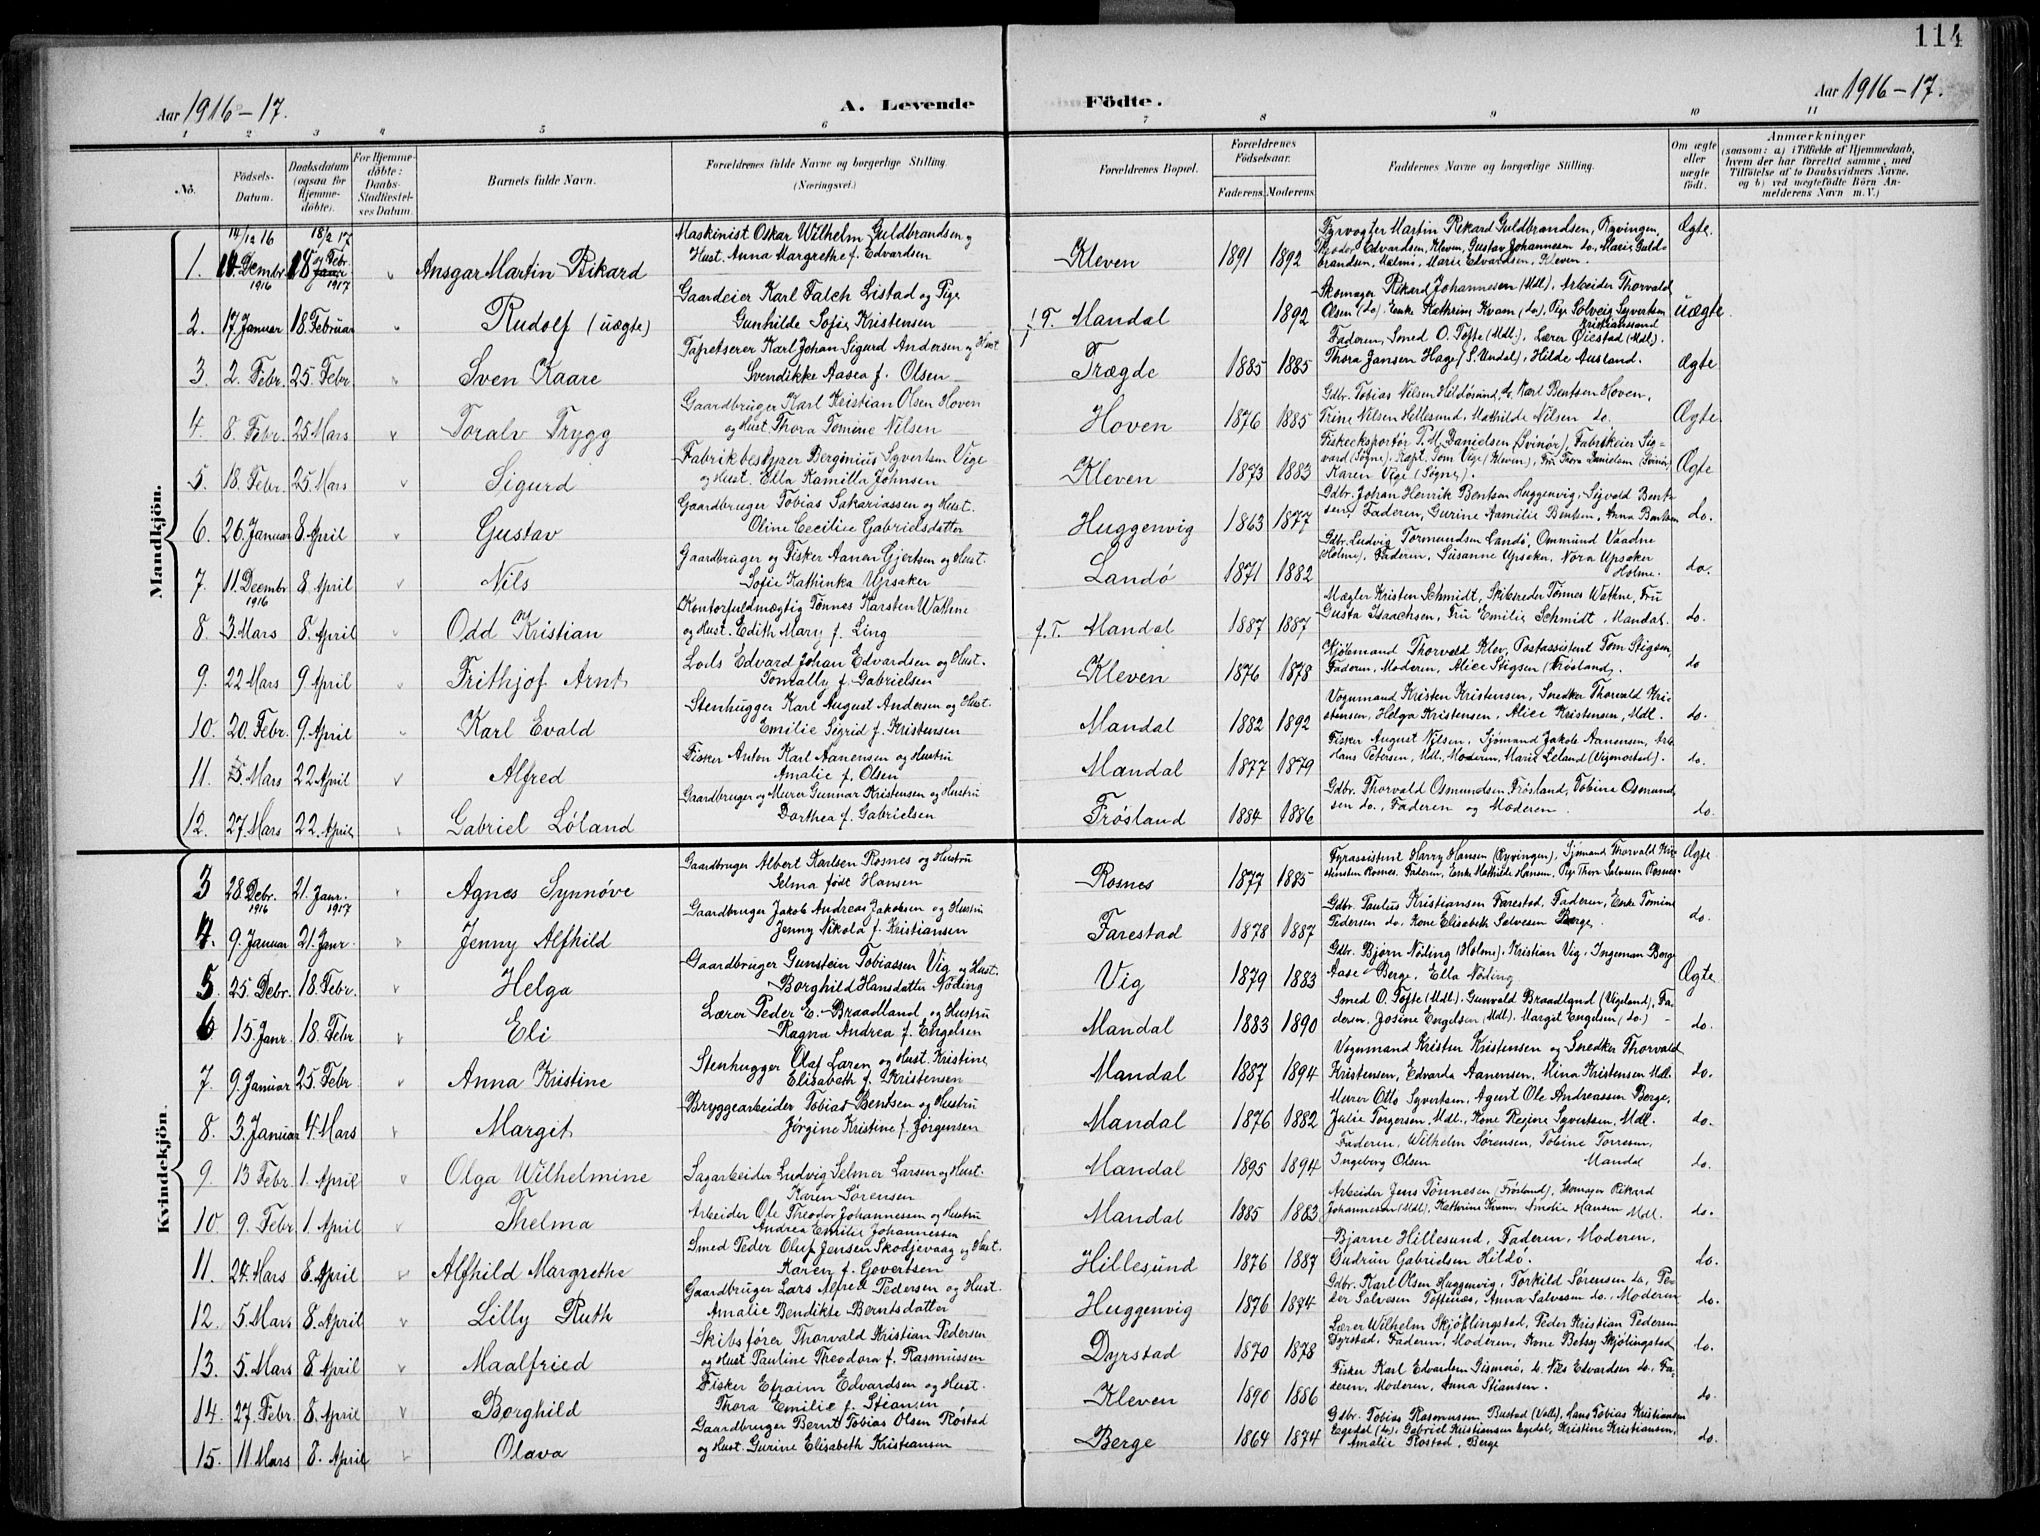 114
Aar 1916-17.
A. Levende Födte.
Aar 1916-17.
1 2 3 4 5 6 7 8 9 10 11
No.
Födsels-Datum.
Daabsdatum (ogsaa for Hjemmedöbte).
For Hjemmedöbte: Daabs-Stadfæstelses Datum.
Barnets fulde Navn.
Forældrenes fulde Navne og borgerlige Stilling. (Næringsvei.)
Forældrenes Bopæl.
Forældrenes Födselsaar.
Faderens. Moderens.
Faddernes Navne og borgerlig Stilling.
Om ægte eller uægte födt.
Anmærkninger
(saasom: a) i Tilfælde af Hjemmedaab, hvem der har forrettet samme, med Tilföielse af to Daabsvidners Navne, og b) ved uægtefödte Börn Anmelderens Navn m. V.)
Mandkjön.
14/12 16 18/2 17
1. 14 Dembr 1916 18 Febr. 1917 v Ansgar Martin Rikard Maskinist Oskar Wilhelm Guldbrandsen og Hust. Anna Margrethe f. Edvardsen Kleven 1891 1892 Fyrvogter Martin Rikard Guldbrandsen, Ryvingen, Edvardsen, Kleven, Gustav Johannesen do, Marie Guldbrandsen, Malmö, Marie Edvardsen, Kleven. Ægte.
2. 17 Januar 18 Februar Rudolf (uægte) Gaardeier Karl Falch Listad og Pige Gunhilde Sofie Kristensen f. T. Mandal 1892 Skomager Rikard Johannesen (Mdl), Arbeider Thorvald Olsen (do). Enke Kathrine Kvam (do), Pige Solveig Syvertsen Kristianssand uægte
3. 2. Febr. 25 Febr. v Sven Kaare Tapetserer Karl Johan Sigurd Andersen og Hust Svendikke Aasea f. Olsen Trægde 1885 1885 Faderen, Smed O. Tofte (Mdl). Lærer Øiestad (Mdl). Thora Jansen Hage (S. Undal), Hilde Ausland. Ægte
4. 8. Febr. 25 Mars v Toralv Trygg Gaardbruger Karl Kristian Olsen Hoven og Hust. Thora Tomine Nilsen Hoven 1876 1885 Gdbr. Tobias Nilsen Hildösund, do. Karl Bentsen Hoven, Trine Nilsen Hillesund, Mathilde Nilsen do. Ægte.
5. 18. Febr. 25 Mars v Sigurd Fabrikbestyrer Berginius Syvertsen Vige og Hust. Ella Kamilla Johnsen Kleven 1873 1883 Fiskeeksportör T. M. Danielsen (Svinör), Fabrikeier Sigvard (Sogne), Kapt. Tom Vige (Kleven), Fru Thora Danielsen (Svinör) Karen Vige (Sogne). Ægte
6. 26 Januar 8. April v Gustav Gaardbruger Tobias Sakariassen og Hust. Oline Cecilie Gabrielsdatter Huggenvig 1863 1877 Gdbr. Johan Henrik Bentsen Huggenvig, Sigvald Bentsen, Faderen, Gurine Aamilie Bentsen, Anna Bentsen do.
7. 11 Decembr 1916 8. April v Nils Gaardbruger og Fisker Aanen Gjertsen og Hust. Sofie Kathinka Upsaker Landö 1871 1882 Gdbr. Ludvig Tormundsen Landö, Ommund Vaadne (Holme), Faderen, Susanne Upsaker, Nora Upsaker Holme. do.
8. 3 Mars 8. April v Odd Kristian Kontorfuldmægtig Tönnes Karsten Wathne og Hust. Edith Mary f. Ling f. T. Mandal 1887 1887 Mægler Kristen Schmidt, Skibsreder Tönnes Wathne, Fru Gusta Isaachsen, Fru Emilie Schmidt, Mandal. do.
9. 22 Mars 9 April v Frithjof Arnt Lods Edvard Johan Edvardsen og Hust. Tomally f. Gabrielsen Kleven 1876 1878 Kjöbmand Thorvald Klev, Postassistent Tom Stigsen, Faderen, Moderen, Alice Stigsen (Frösland). do
10. 20. Febr. 9. April Karl Evald Stenhugger Karl August Andersen og Hust. Emilie Sigrid f. Kristensen Mandal 1882 1892 Vognmand Kristen Kristensen, Snedker Thorvald Kristensen, Helga Kristensen, Alice Kristensen, Mdl. do.
11. 5 Mars 22 April v Alfred Fisker Anton Karl Aanensen og Hustru Amalie f. Olsen Mandal 1877 1879 Fisker August Nilsen, Sjömand Jakob Aanensen, Arb. Hans Petersen, Mdl. Moderen, Marie Leland (Vigmostad). do.
12. 27 Mars 22 April v Gabriel Löland Gaardbruger og Murer Gunnar Kristensen og Hustru Dorthea f. Gabrielsen Frösland 1884 1886 Gdbr. Thorvald Osmundsen Frösland, Tobina Osmundsen do., Faderen og Moderen. do.
Kvindekjön.
3 28 Debr. 1916 21. Janr. 1917 v Agnes Synnöve Gaardbruger Albert Karlsen Rosnes og Hustru Selma födt Hansen Rosnes 1877 1885 Fyrassistent Harry Hansen (Ryvingen), Sjömand Thorvald Kristensten Rosnes. Faderen, Enke Mathilde Hansen, Pige Thora Salvesen Rosnes. Ægte
4. 9. Januar 21. Janr. v Jenny Alfhild Gaardbruger Jakob Andreas Jakobsen og Hustru Jenny Nikola f. Kristiansen Farestad 1878 1887 Gdbr. Paulus Kristiansen Farestad, Faderen, Enke Tomine Pedersen do. Kone Elisabeth Salvesen Berge. do.
5. 25. Debr. 18. Febr. v Helga Gaardbruger Gunstein Tobiassen Vig og Hust. Borghild Hansdatter Nöding Vig 1879 1883 Gdbr. Björn Nöding (Holme), Kristian Vig, Ingeman Berg Aase Berge, Ella Nöding Ægte
6 15. Janr. 18. Febr v Eli Lærer Peder E. Braadland og Hustru Ragna Andrea f. Engelsen Mandal 1883 1890 Smed O. Tofte (Mdl). Gunvald Braadland (Vigeland), Faderen, Josine Engelsen (Mdl), Margit Engelsen (do) do.
7. 9. Januar 25. Febr v Anna Kristine Stenhugger Olaf Laren og Hust. Kristine Elisabeth f. Kristensen Mandal 1887 1894 Vognmand Kristen Kristensen og Snedker Thorvald Kristensen, Edvarda Aanensen, Mina Kristensen Mdl. do.
8. 3. Januar 4. Mars v Margit Bryggearbeider Tobias Bentsen og Hustru Jörgine Kristine f. Jörgensen Mandal 1876 1882 Murer Otto Syvertsen, Agent Ole Andreassen Berge, Julie Torgersen, Mdl. Kone Regine Syvertsen, Mdl. do.
9. 13 Febr. 1. April v Olga Wilhelmine Sagarbeider Ludvig Selmer Larsen og Hust. Karen Sörensen Mandal 1895 1894 Faderen, Wilhelm Sörensen, Tobine Torresen, Ingeborg Olsen Mandal do.
10 9. Febr 1. April v Thelma Arbeider Ole Theodor Johannessen og Hustru Andrea Emilie Johannessen Mandal 1885 1883 Arbeider Jens Tönnesen (Frösland), Skomager Rikard Johannesen (Mdl), Kathrine Kvam, Amalie Hansen Mdl. do.
11. 24. Mars 6. April v Alfhild Margrethe Smed Peder Oluf Jensen Skodjevaag og Hust. Karen f. Govertsen Hillesund 1876 1887 Bjarne Hillesund, Faderen, Moderen, Gudrun Gabrielsen Hildö. do.
12. 5. Mars 8. April v Lilly Ruth Gaardbruger Lars Alfred Pedersen og Hust. Amalie Bendikte Berntsdatter Huggenvig 1876 1874 Gdbr. Karl Olsen Huggenvig, Torkild Sörensen do, Peder Salvesen Toftenes, Anna Salvesen do. Moderen do.
13. 5. Mars 8 April v Maalfried Skibsförer Thorvald Kristian Pedersen og Hust Pauline Theodora f. Rasmussen Dyrstad 1870 1878 Lærer Wilhelm Skjöflingstad, Peder Kristian Pedersen Dyrstad, Faderen, Moderen, Kone Betsy Skjölingstad do.
14. 27 Febr. 8. April v Borghild Fisker Efraim Edvardsen og Hust. Thora Emilie f. Stiansen Kleven 1890 1886 Fisker Karl Edvardsen Gismerö, do. Nils Edvardsen do, Faderen, Moderen, Anna Stiansen. do.
15. 11 Mars 8. April v Olava Gaardbruger Bernt Tobias Olsen Röstad og Hust. Gurine Elisabeth Kristiansen Berge 1864 1874 Gdbr. Tobias Rasmussen Bustad (Valle), Hans Tobias Kristiansen Egedal (do), Gabriel Kristiansen Egedal, Kristine Kristiansen, Amalie Rostad, Berge do.